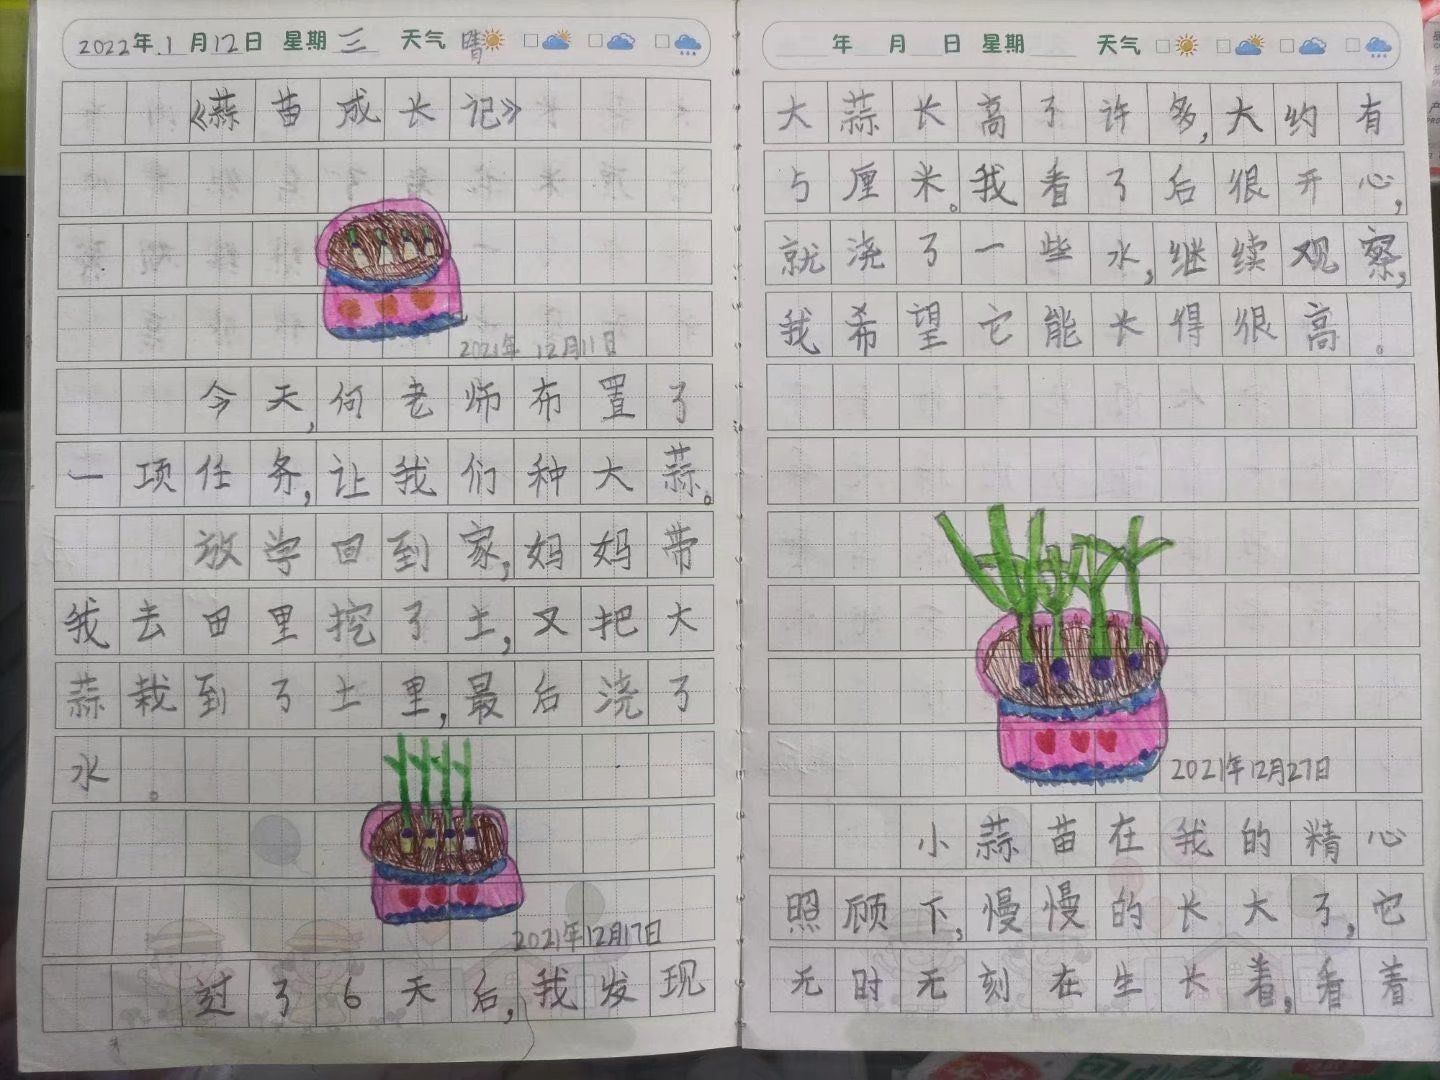 2022年 1 月 12 日 星期 三 天气 晴
《蒜苗成长记》
2021年 12月11日
今天,何老师布置了
一项任务,让我们种大蒜。
放学回到家,妈妈带
我去田里挖了土,又把大
蒜栽到了土里,最后浇了
水。
2021年12月17日
过了6天后,我发现
年 月 日 星期 天气
大蒜长高了许多,大约有
5厘米。我看了后很开心,
就浇了一些水,继续观察,
我希望它能长得很高。
2021年12月27日
小蒜苗在我的精心
照顾下,慢慢的长大了,它
无时无刻在生长着,看着